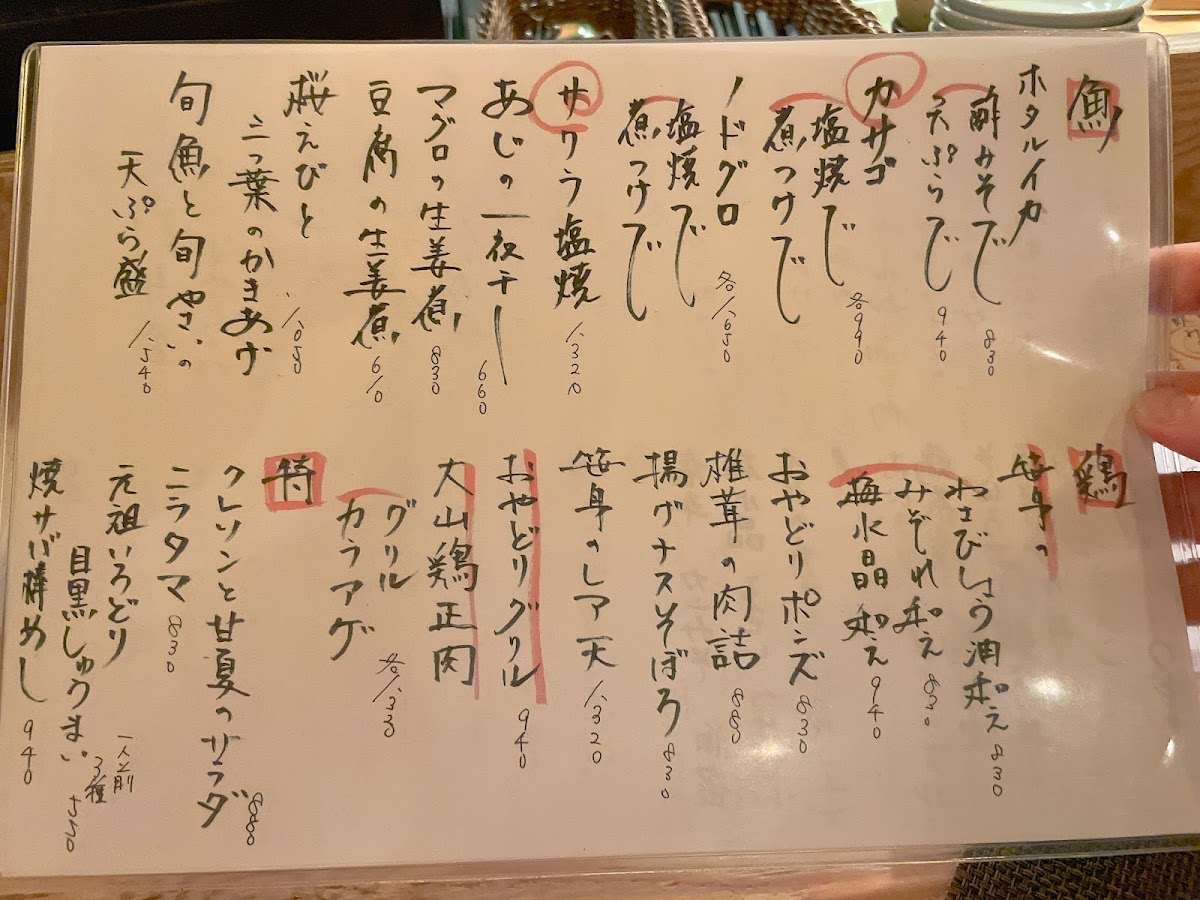 魚
ホタルイカ
酢みそで 830
天ぷらで 940
カサゴ
塩焼で
煮つけで 各990
ノドグロ
塩焼で
煮つけで 各1,650
サワラ塩焼 1,320
あじの一夜干し 660
マグロの生姜煮 830
豆腐の生姜煮 610
桜えびと
三つ葉のかきあげ 1,050
旬魚と旬やさいの
天ぷら盛 1,540
鶏
笹身の
わさびしょう油和え 830
みぞれ和え 830
梅水晶和え 940
おやどりポンズ 830
椎茸の肉詰 880
揚げナスそぼろ 830
笹身のレア天 1,320
おやどりグリル 940
大山鶏正肉
グリル
カラアゲ 各1,33
特
クレソンと甘夏のサラダ 880
ニラタマ 830
元祖いろどり
目黒しゅうまい 一人前 3種 550
焼サバ棒めし 940